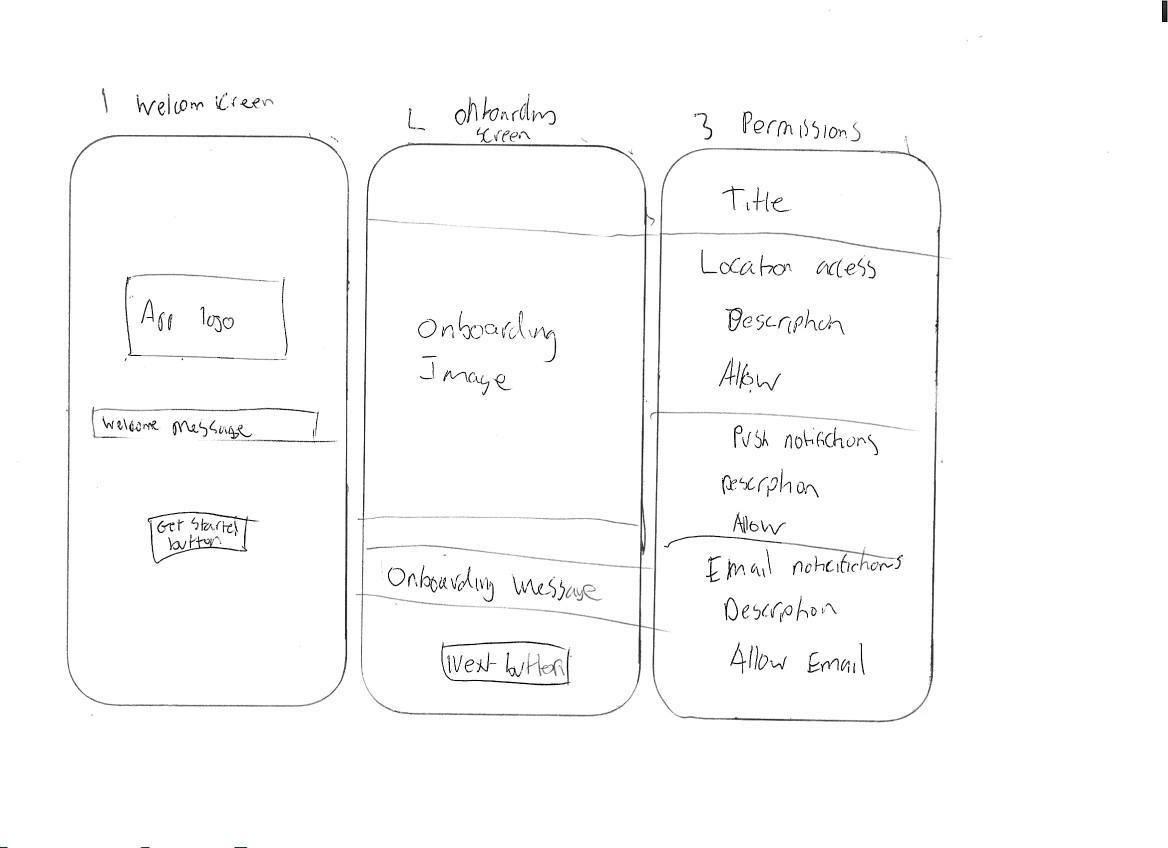 1 Welcom screen
App logo
Welcome message
Get Started
button
2 Onboarding
screen
Onboarding
Image
Onboarding message
Next button
3 Permissions
Title
Location access
Description
Allow
Push notifictions
Descrption
Allow
Email noticifictions
Description
Allow Email